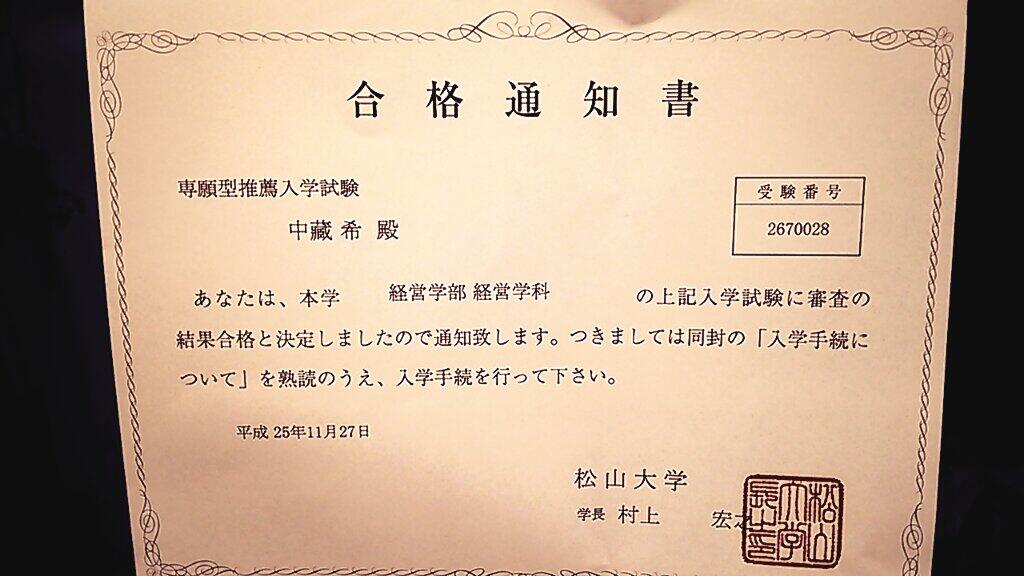 合格通知書
専願型推薦入学試験
中藏 希 殿
受験番号
2670028
あなたは、本学 経営学部 経営学科 の上記入学試験に審査の
結果合格と決定しましたので通知致します。つきましては同封の「入学手続に
ついて」を熟読のうえ、入学手続を行って下さい。
平成 25年11月27日
松山大学
学長 村上 宏之
松山大学長之印